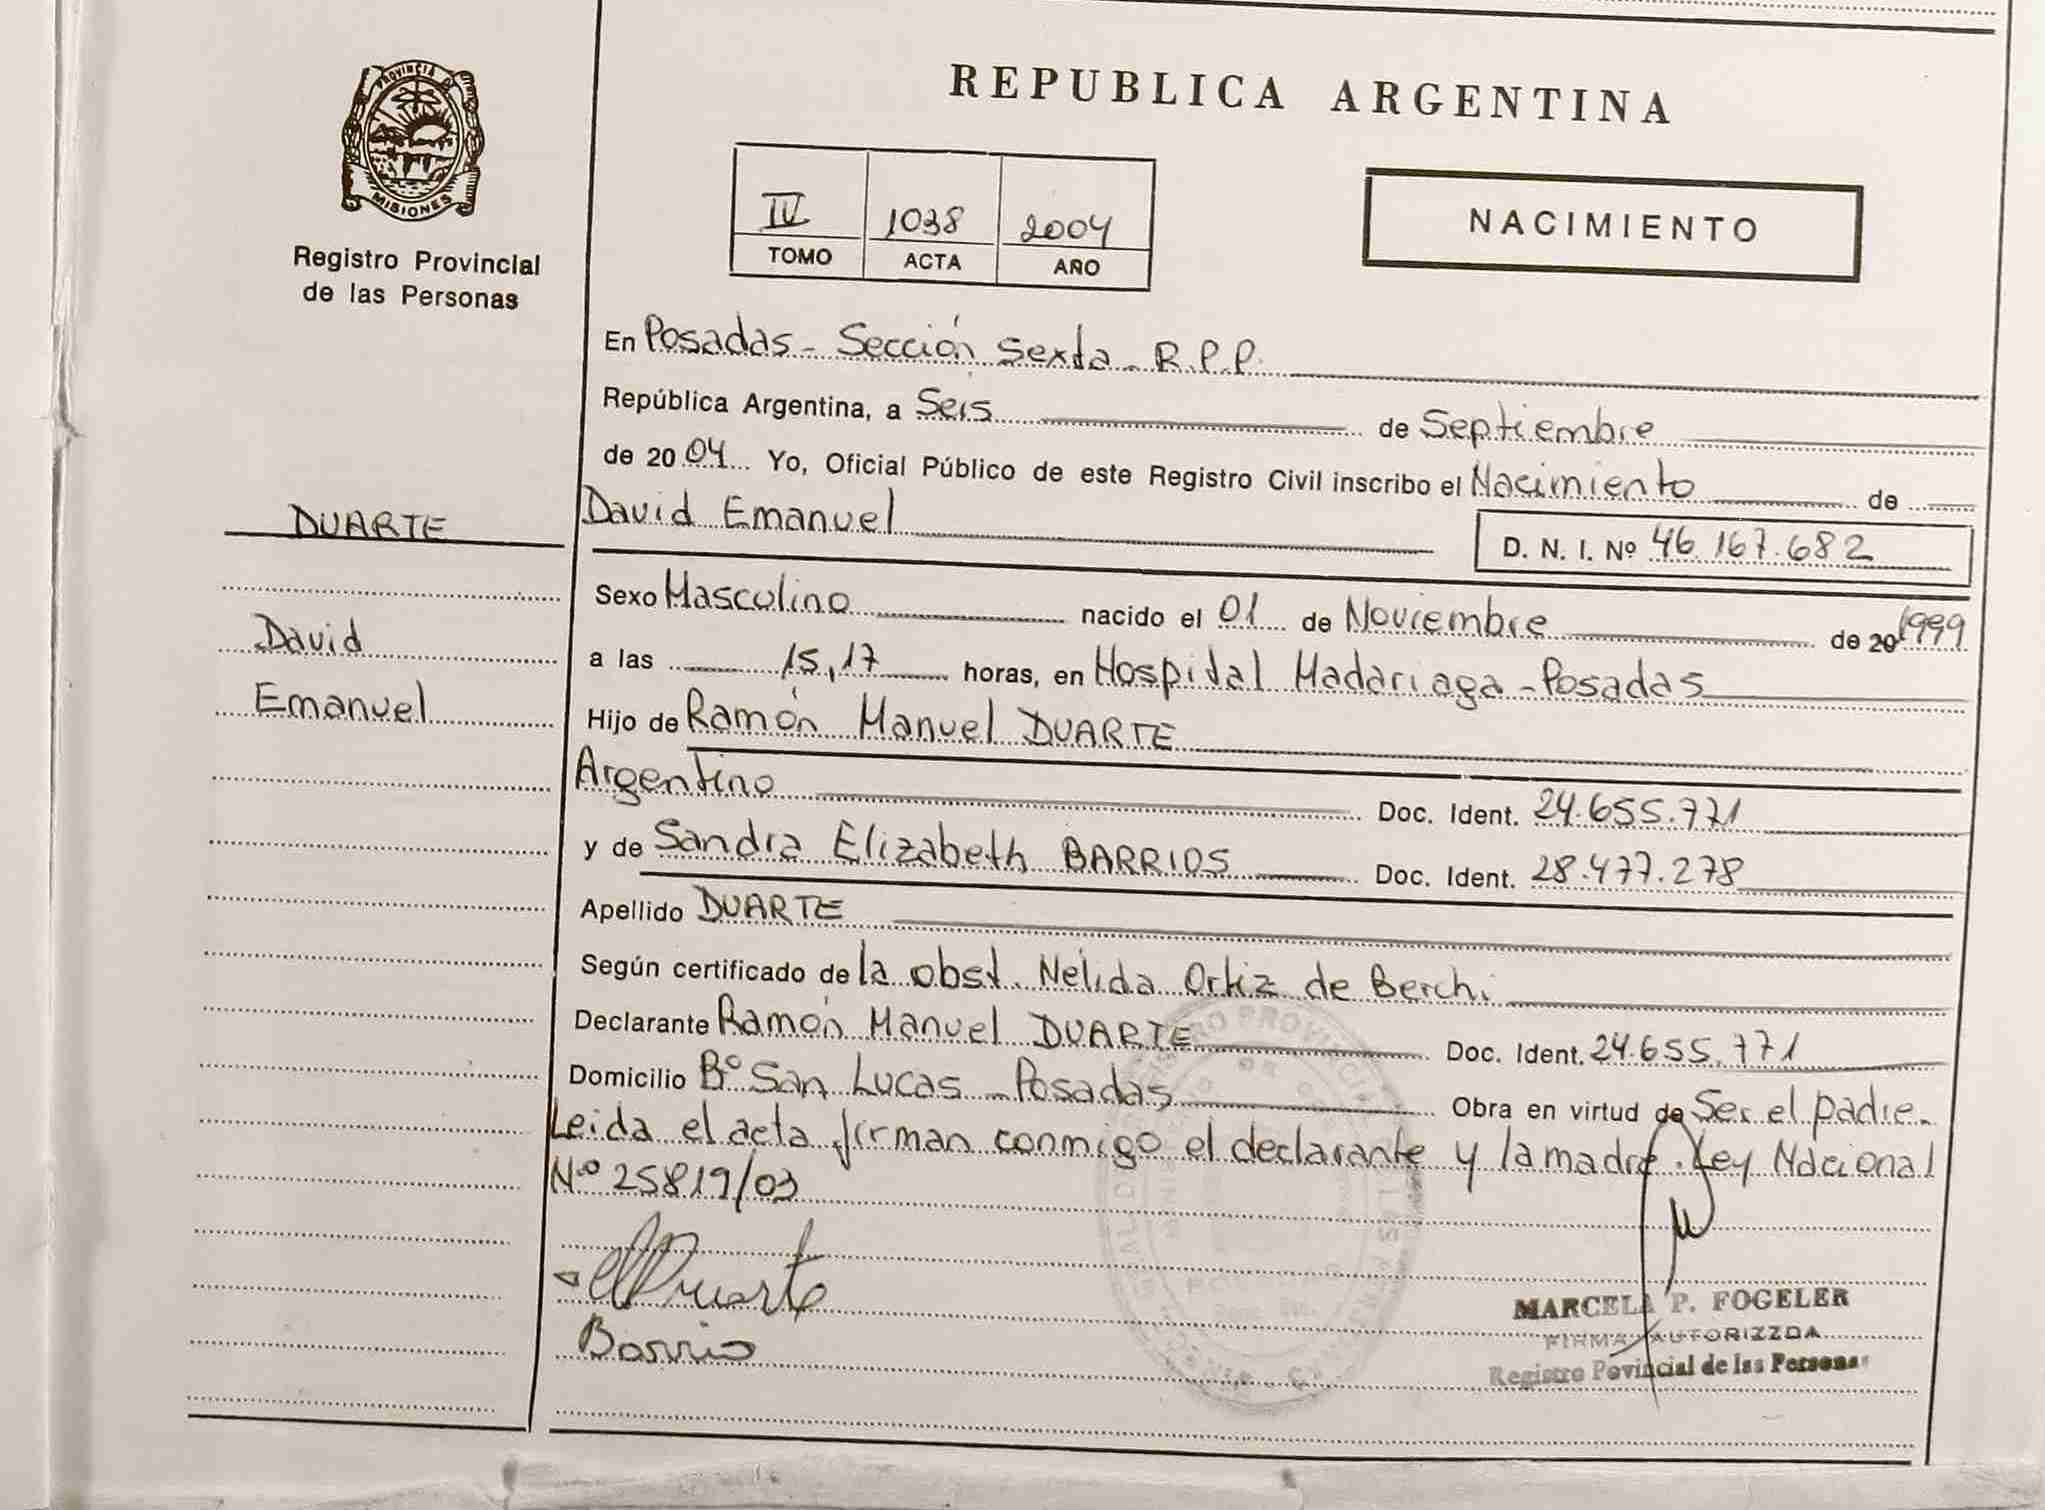 PROVINCIA DE
MISIONES
Registro Provincial
de las Personas
REPUBLICA ARGENTINA
IV 1038 2004
TOMO ACTA AÑO
NACIMIENTO
En Posadas - Sección Sexta - R.P.P.
República Argentina, a Seis de Septiembre
de 2004 Yo, Oficial Público de este Registro Civil inscribo el Nacimiento de
David Emanuel
D. N. I. Nº 46.167.682
DUARTE
David
Emanuel
Sexo Masculino nacido el 01 de Noviembre de 20 1999
a las 15,17 horas, en Hospital Madariaga - Posadas
Hijo de Ramón Manuel DUARTE
Argentino Doc. Ident. 24.655.771
y de Sandra Elizabeth BARRIOS Doc. Ident. 28.477.278
Apellido DUARTE
Según certificado de la obst. Nélida Ortiz de Berchi
Declarante Ramón Manuel DUARTE Doc. Ident. 24.655.771
Domicilio Bº San Lucas - Posadas Obra en virtud de Ser el padre.
Leida el acta firman conmigo el declarante y la madre. Ley Nacional
Nº 25819/03
Duarte
Barrio
MARCELA P. FOGELER
FIRMA AUTORIZZDA
Registro Povincial de las Personas